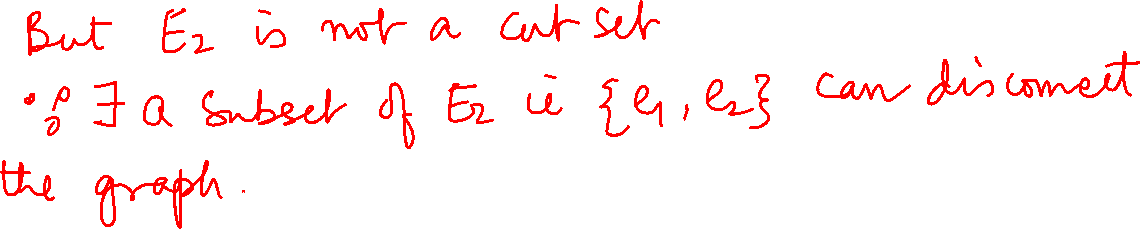 But E₂ is not a cut set
∵ ∃ a subset of E₂ ie {e₁, e₂} can disconnect
the graph.